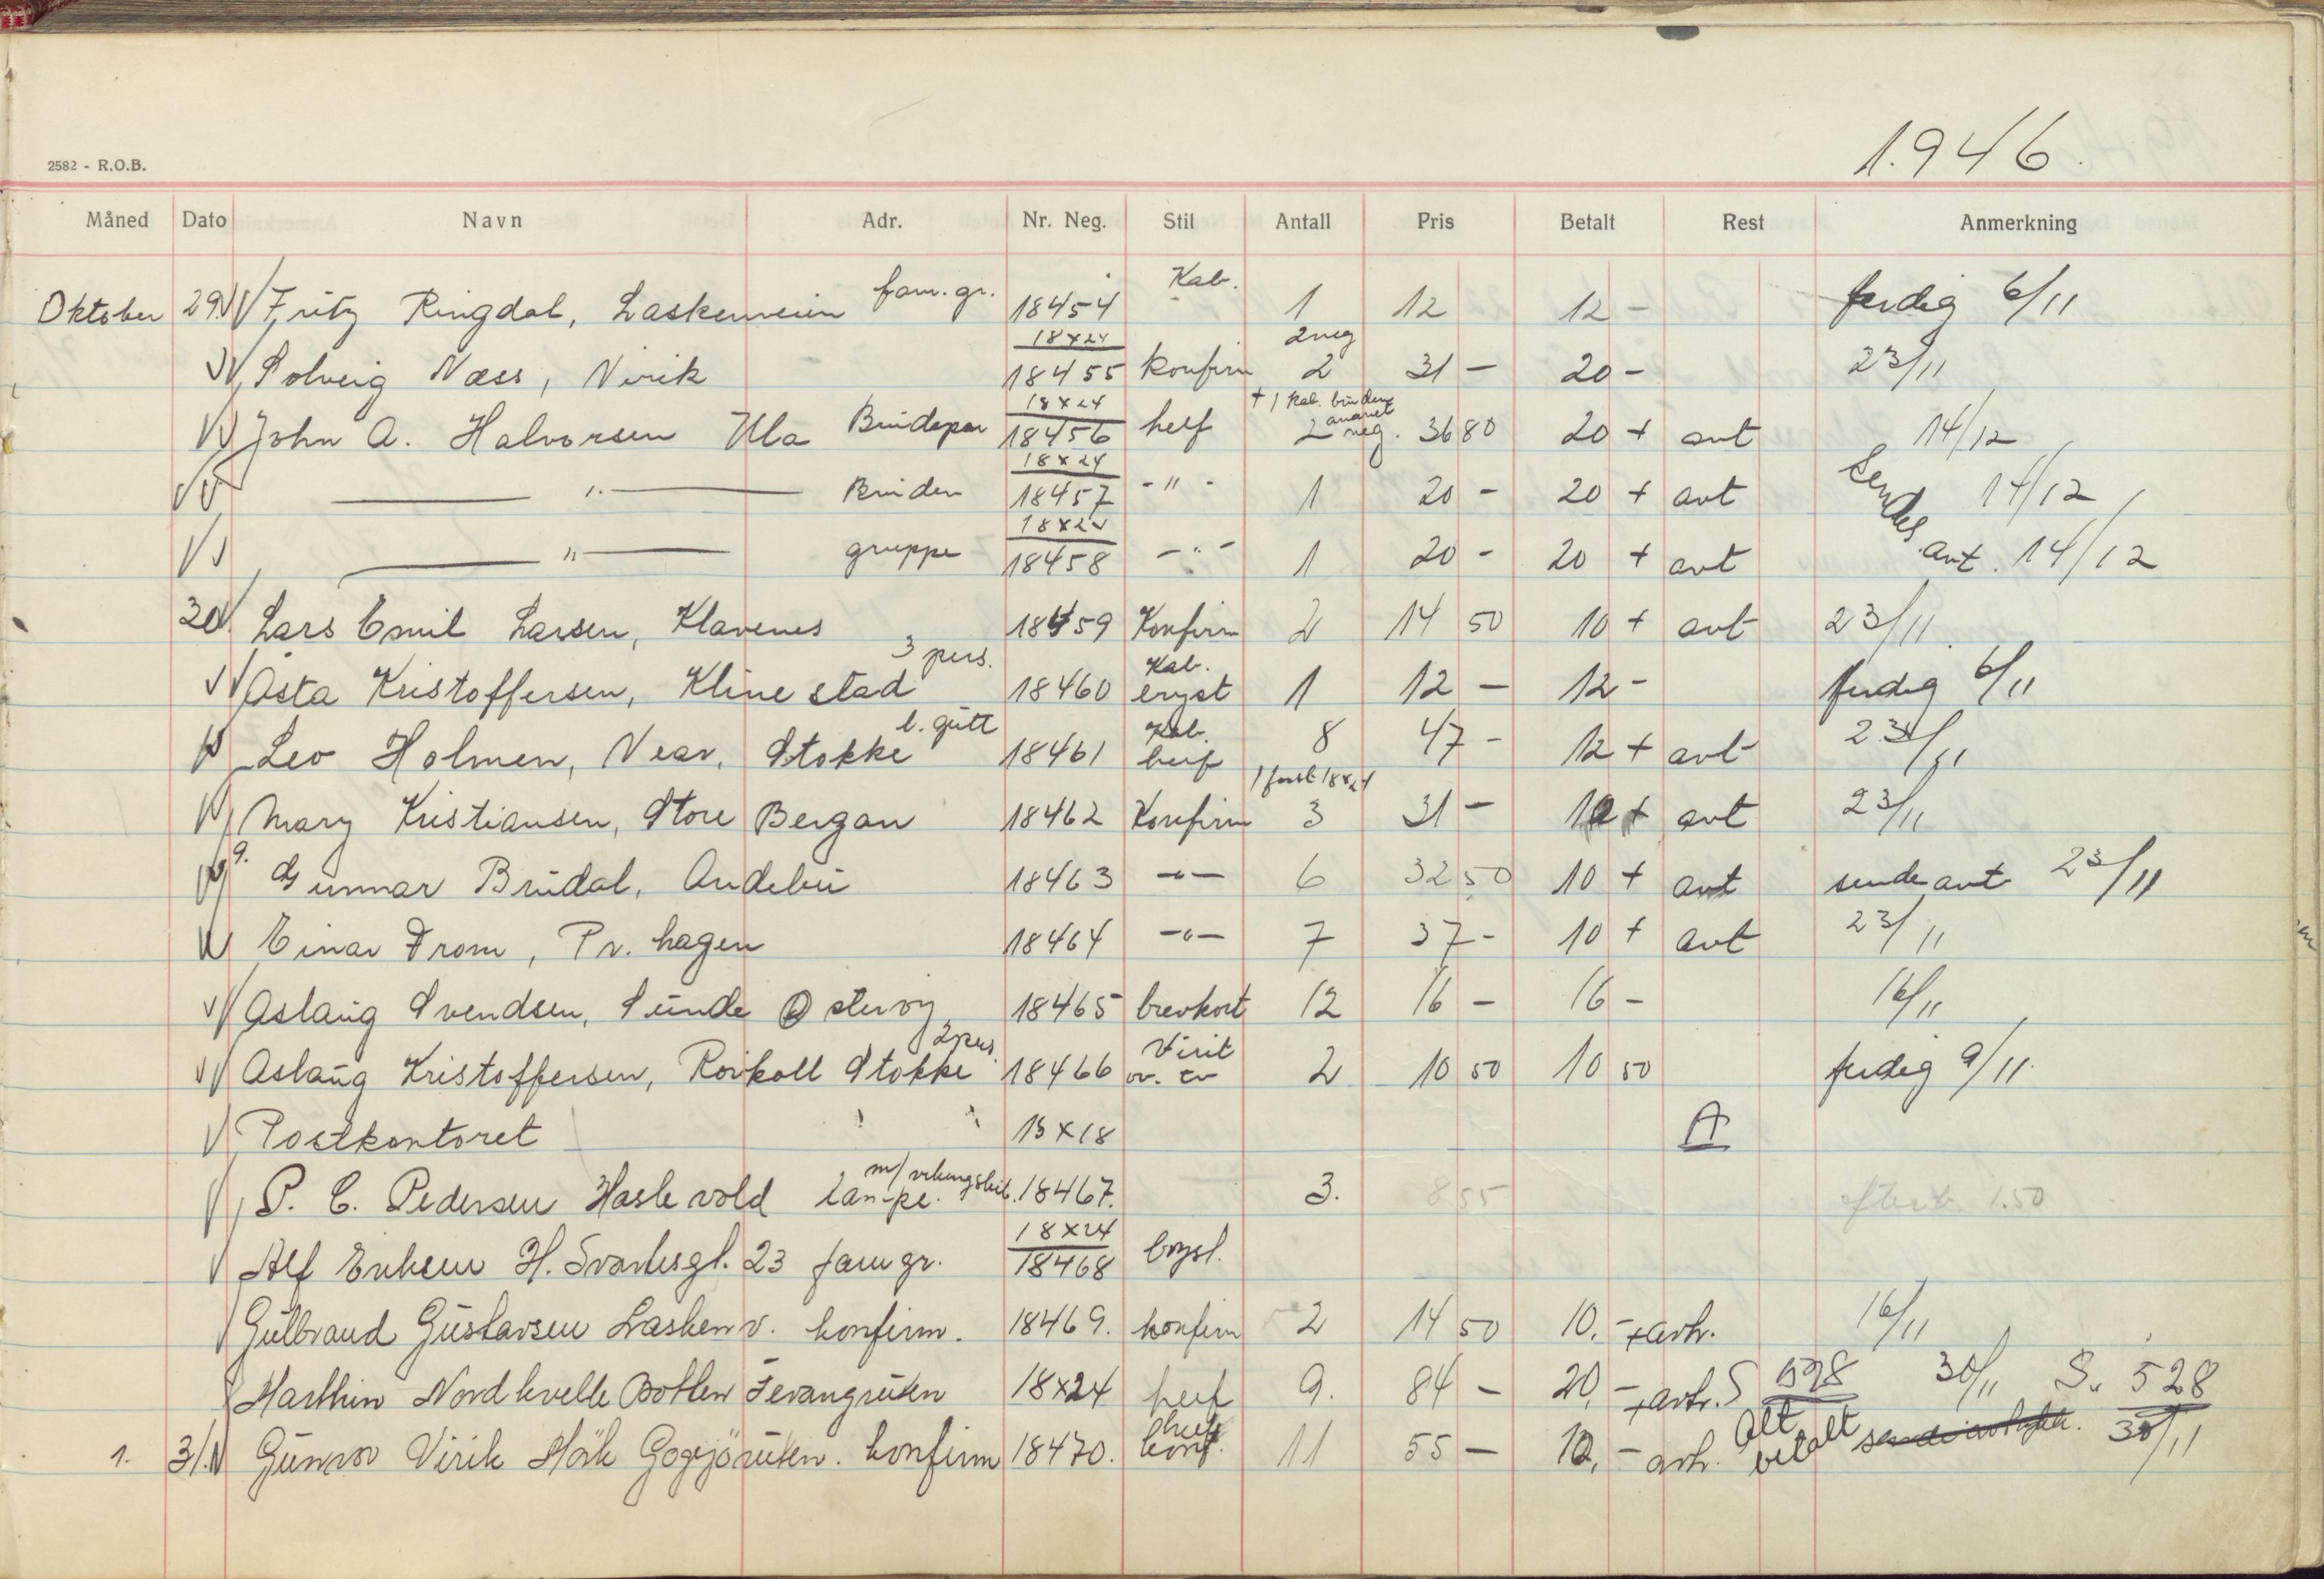 1946.
2582 - R.O.B.
Måned Dato Navn Adr. Nr. Neg. Stil Antall Pris Betalt Rest Anmerkning
Oktober 29. Fritz Ringdal, Laskenveien fam. gr. 18454 Kab. 1 12 12 - ferdig 6/11
Solveig Næss, Virik 18x24 18455 konfirm 2 neg 2 31 - 20 - 23/11
John A. Halvorsen Ula Brudepar 18x24 18456 helf + 1 kab. bruden 2 neg. 36 80 20 + avt 14/12
— " — Bruden 18x24 18457 - " - 1 20 - 20 + avt Sendes 14/12
— " — gruppe 18x24 18458 - " - 1 20 - 20 + avt avt. 14/12
30 Lars Emil Larsen, Klavenes 18459 Konfirm 2 14 50 10 + avt 23/11.
Åsta Kristoffersen, Klinestad 3 pers. 18460 Kab. 1 12 - 12 - ferdig 6/11
Leo Holmen, Vear, Stokke l. gutt 18461 Kab. helf 8 47 - 12 + avt 23/11
Mary Kristiansen, Store Bergan 18462 Konfirm 1 18x24 3 31 - 10 + avt 23/11
Gunnar Brudal, Andebu 18463 - " - 6 32 50 10 + avt sende avt 23/11
Einar From, Pr. hagen 18464 - " - 7 37 - 10 + avt 23/11
Aslaug Svendsen, Sunde Østerøy 18465 brevkort 12 16 - 16 - 16/11
Aslaug Kristoffersen, Rovkoll Stokke 2 pers. 18466 Visit 2 10 50 10 50 ferdig 9/11.
Postkontoret 13x18 A
P. C. Pedersen Haslevold lampe. m/ vikungskib. 18467. 3. 8 55 1.50
Alf Eriksen H. Svartesgt. 23 fam gr. 18x24 18468 brysl.
Gulbrand Gustavsen Laskenv. konfirm. 18469. konfirm 2 14 50 10. - + avh. 16/11
Marthin Nordkvelle Botten Fevangruten 18x24 helf 9. 84 - 20, - + avh. S 528 30/11 S. 528
1. 31. Gunvor Virik Mörk Gogsjøruten. konfirm 18470. helf konf. 11 55 - 10, - avh. Alt betalt 30/11